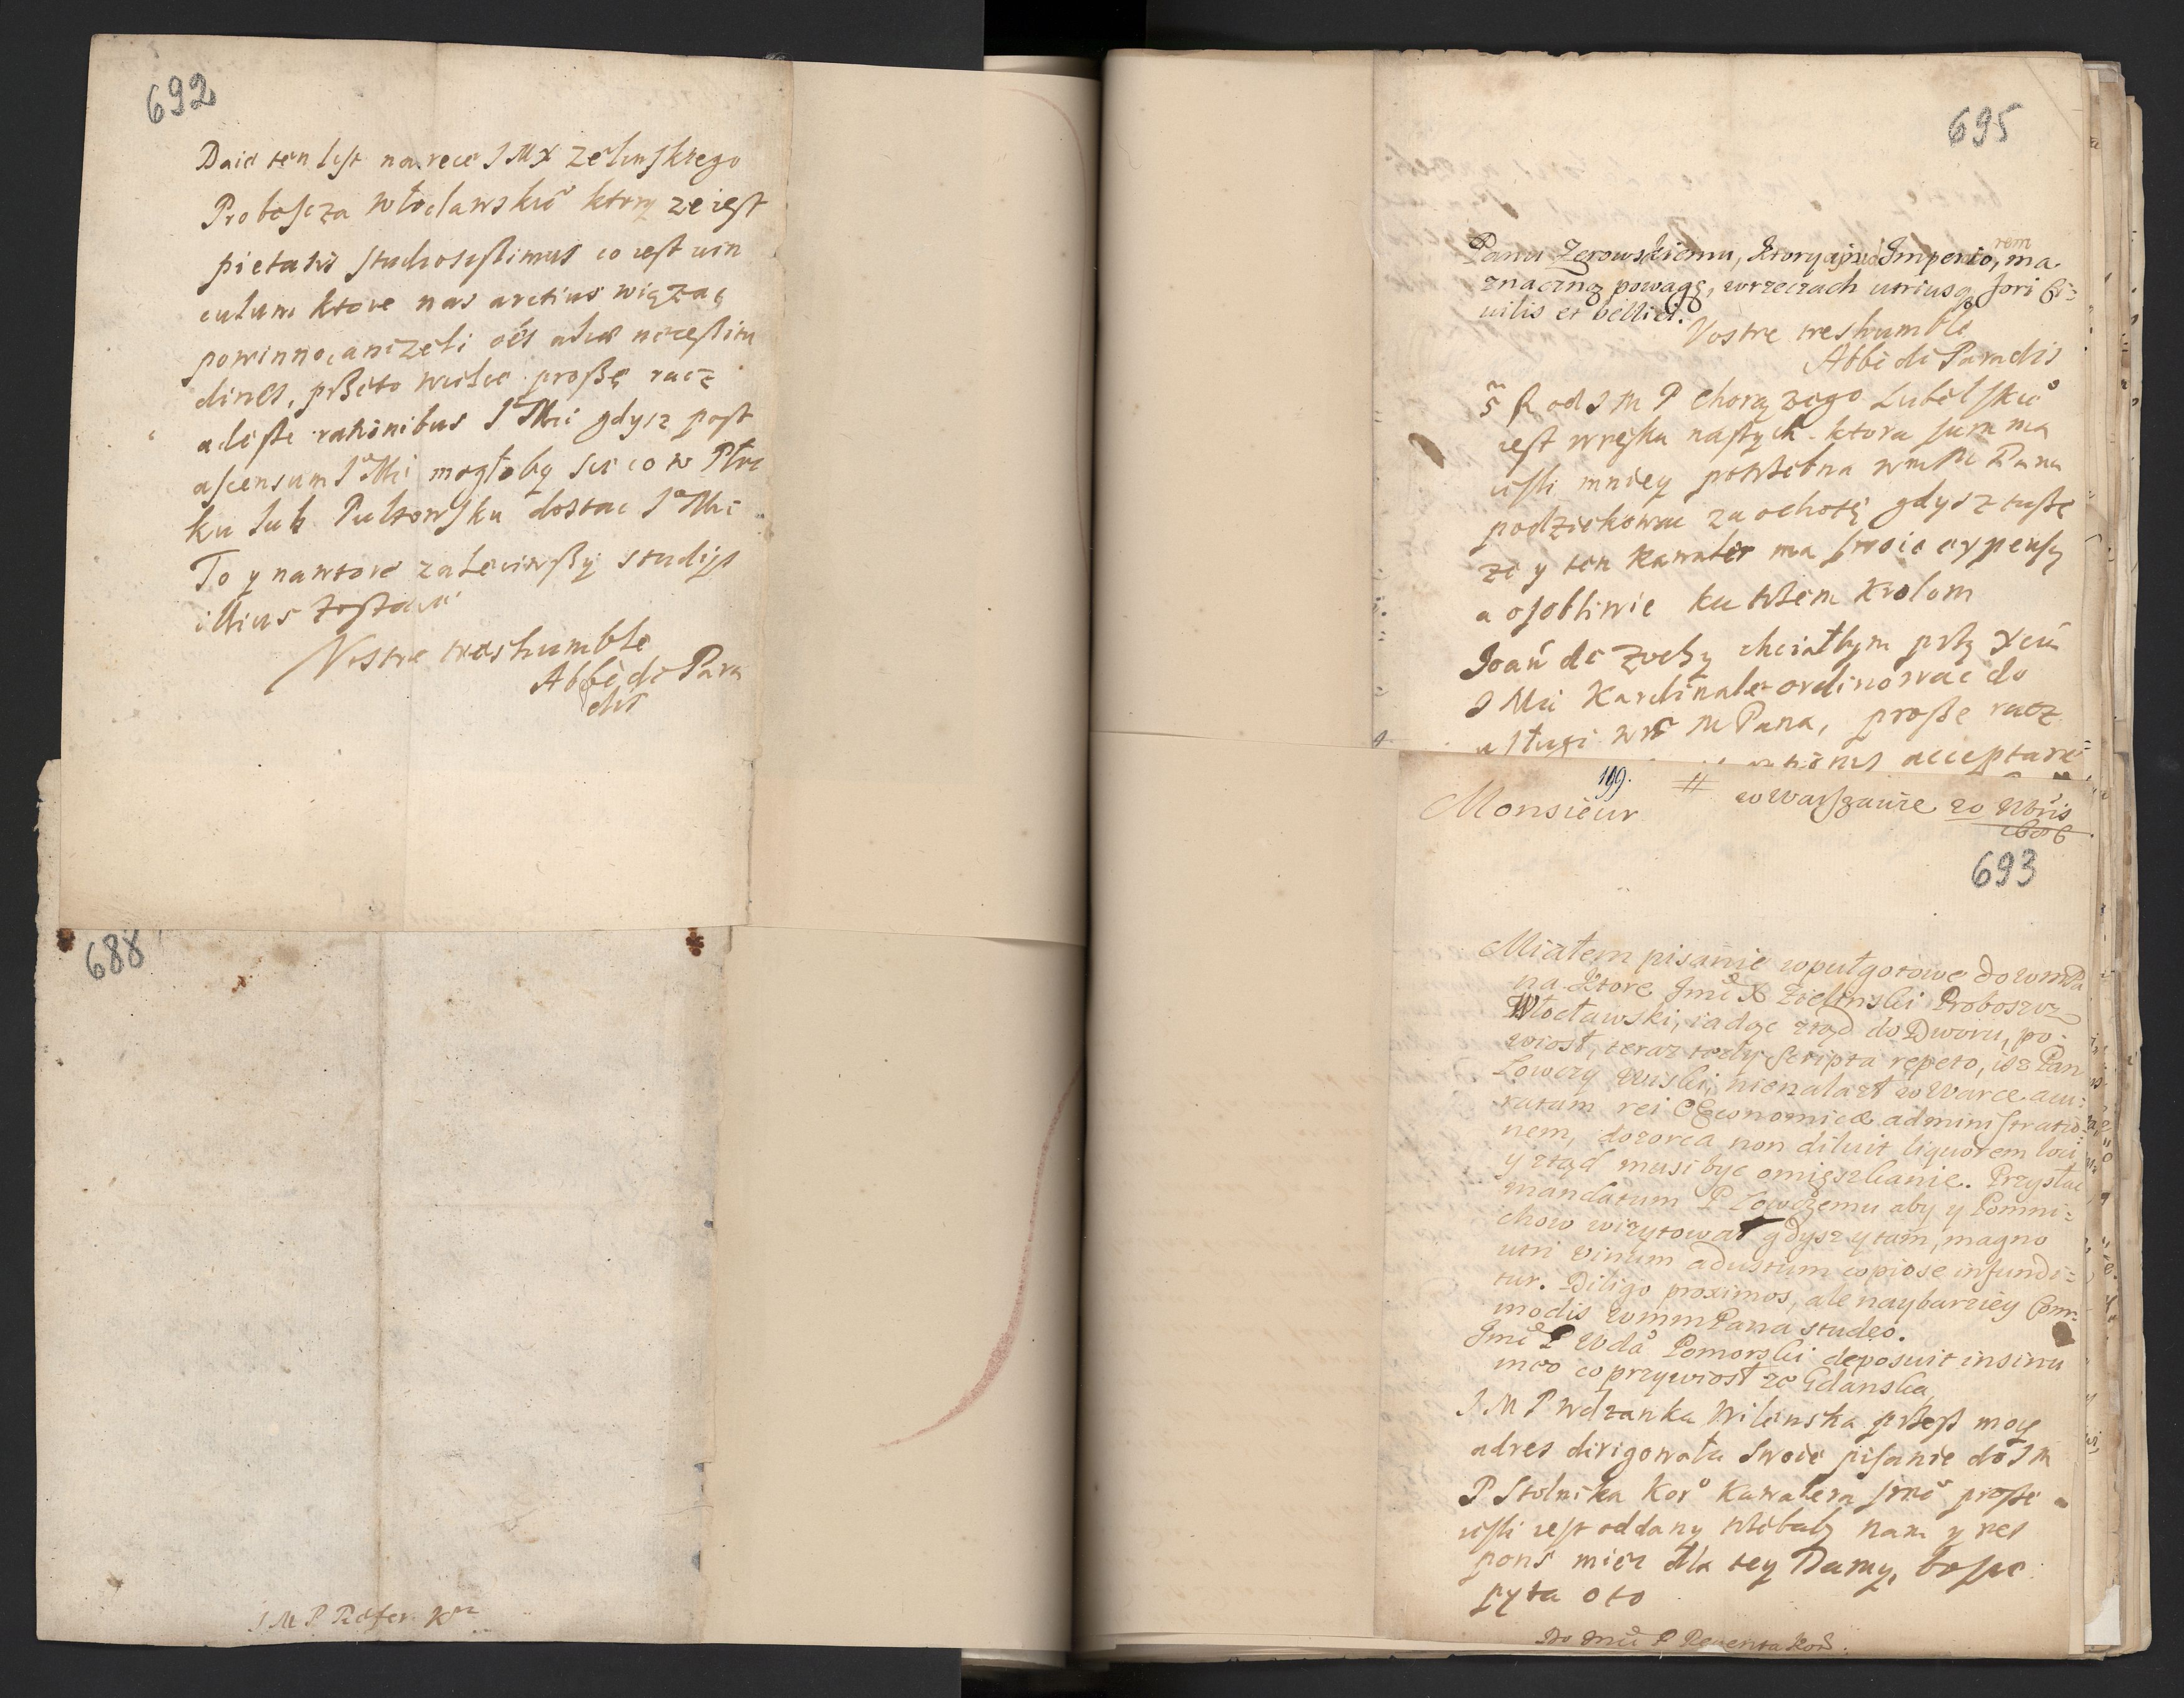 692
Daie ten list na rece J M X Zelinskiego
Proboscza Włoclawskiº ktory ze iest
pietatis studiosissimus co iest vin
culum ktore nas arctius wiązaę
powinno anizeli oẽs aliæ necessitu
dines, przeto wielce proszę racz
adesse rationibus Jº Mci gdysz post
ascensum Jº Mci mogłoby sie co w Płoc
ku lub Pultowsku dostac Jº Mci
To y nawtore zaleciwszy studijs
illius zostaię
Vostre treshumble
Abbè de Para
dis
688
J M P Refer. Kor
695
Panu Zerowskiemu, ktory apud Imperio, ma
rem
znaczną powagę, w rzeczach utriusq fori Ci=
uilis et bellici.
Vostre treshumble
Abbè de Paradis
5 R od J M P Chorązego Lubelskiº
iest w ręku nastych ktora summa
iesli mniey potrzebna wm M Panu
podziekowac za ochotę gdysz tusze
ze y ten Kawaler ma swoie expensy
a osobliwie ku trzem Krolom
Joañ de Zochy chciałbym przy Xciu
J Mci Kardinale ordinowac do
usługi wṡ M Pana, prosze racz
acceptare
199.
Monsieur # w Warszawie 20 Nbris
1686
693
Miałem pisanie wpułgotowe do wm Pa
na ktore Jmć X Zielinski Proboszcz
Włocławski, iadąc ztąd do Dworu, po=
wiosł, teraz tedy scripta repeto, isz Pan
Łowczy Ruski, nienalazł w Warce accu=
ratam rei Œconomicæ administratio
nem, dozorca non diluit liquorem loci
y ztąd musi byc omięszkanie. Przysłac
mandatum P Łowczemu aby y Pomni=
chow wizytował gdysz y tam, magno
utri vinum adustum copiose infundi=
tur. Diligo proximos, ale naybarziey Com=
modis wmm Pana studeo.
Jmć P Wdá Pomorski deposuit in sinu
meo co przywiosł ze Gdanska
J M P Wdzanka Wilenska przesz moy
adres dirigowała swoie pisanie do J M
P Stolnika Korº Kawalera smº prosze
iesli iest oddany trzebaby nam y res
pons miec dla tey Damy, bo sie
pyta o to
Do Jmci P Referenta Kor.